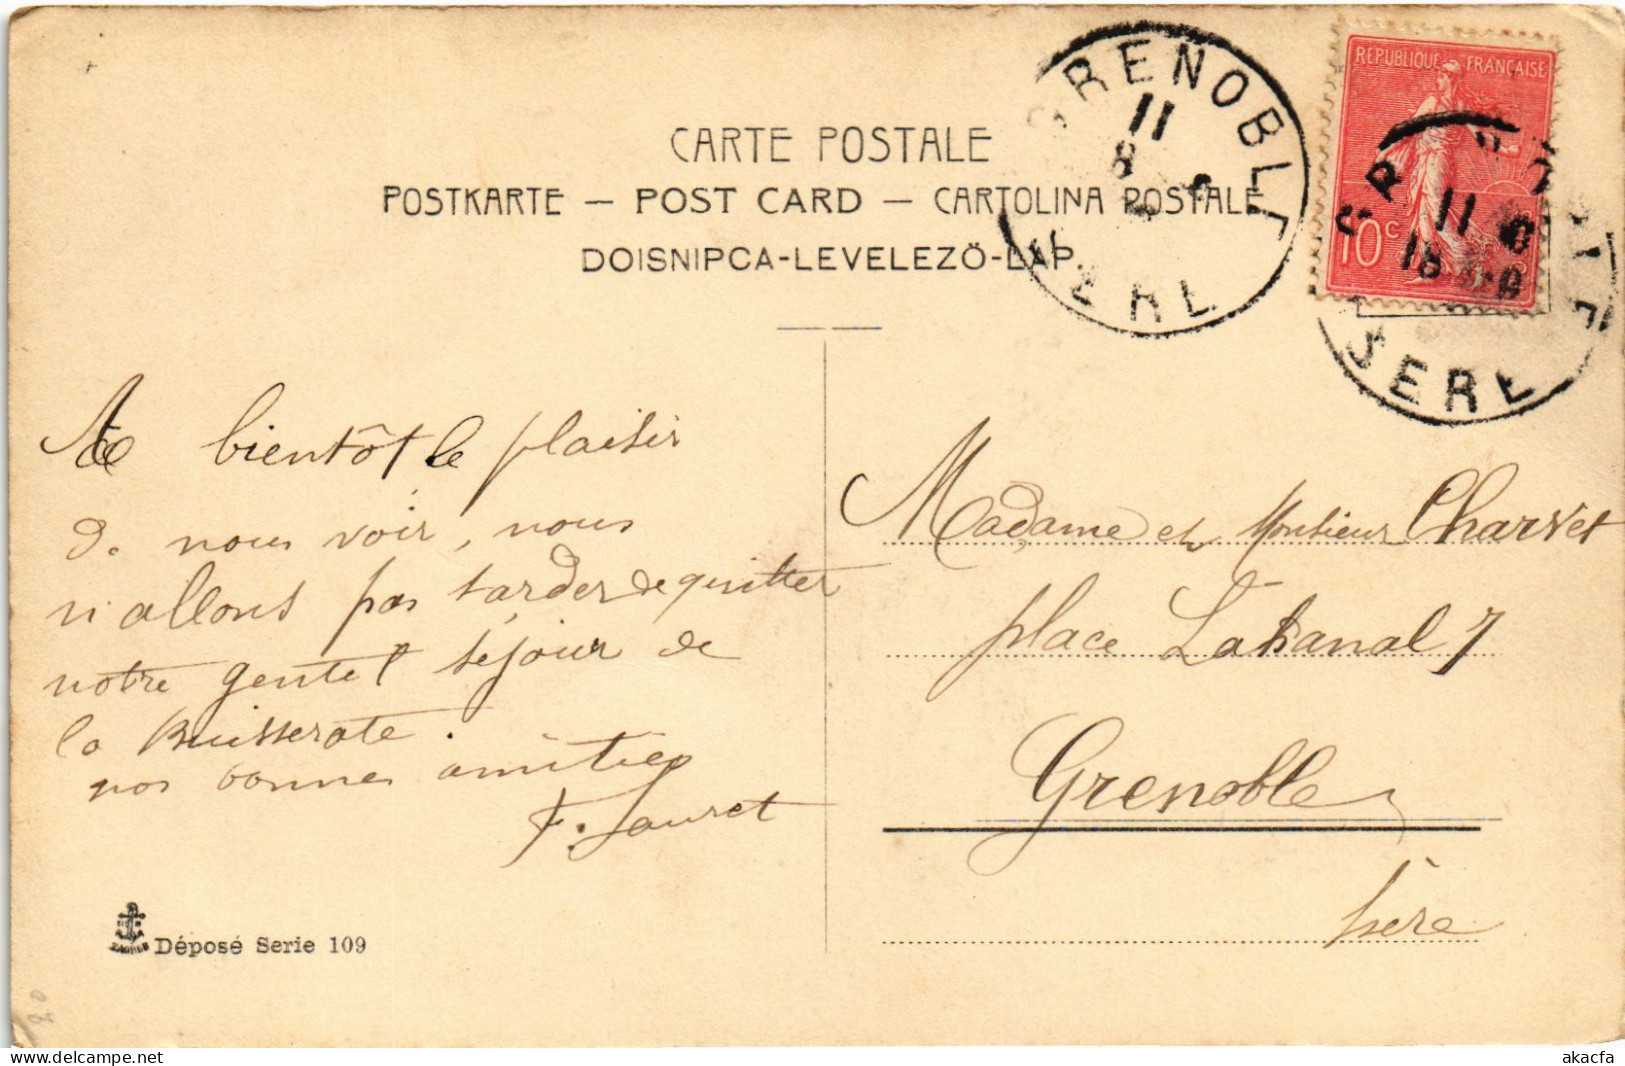 CARTE POSTALE
POSTKARTE — POST CARD — CARTOLINA POSTALE
DOISNIPCA-LEVELEZÖ-LAP.
GRENOBLE
11
8
ISERE
REPUBLIQUE FRANÇAISE
10c
11
18
ISERE
A bientôt le plaisir
de nous voir, nous
n'allons pas tarder de quitter
notre gentil séjour de
la Buisserate.
nos bonnes amitiés
F. Jauret
Madame et Monsieur Charvet
place Lakanal 7
Grenoble
Isère
ZAGREB
Déposé Serie 109
akacfa